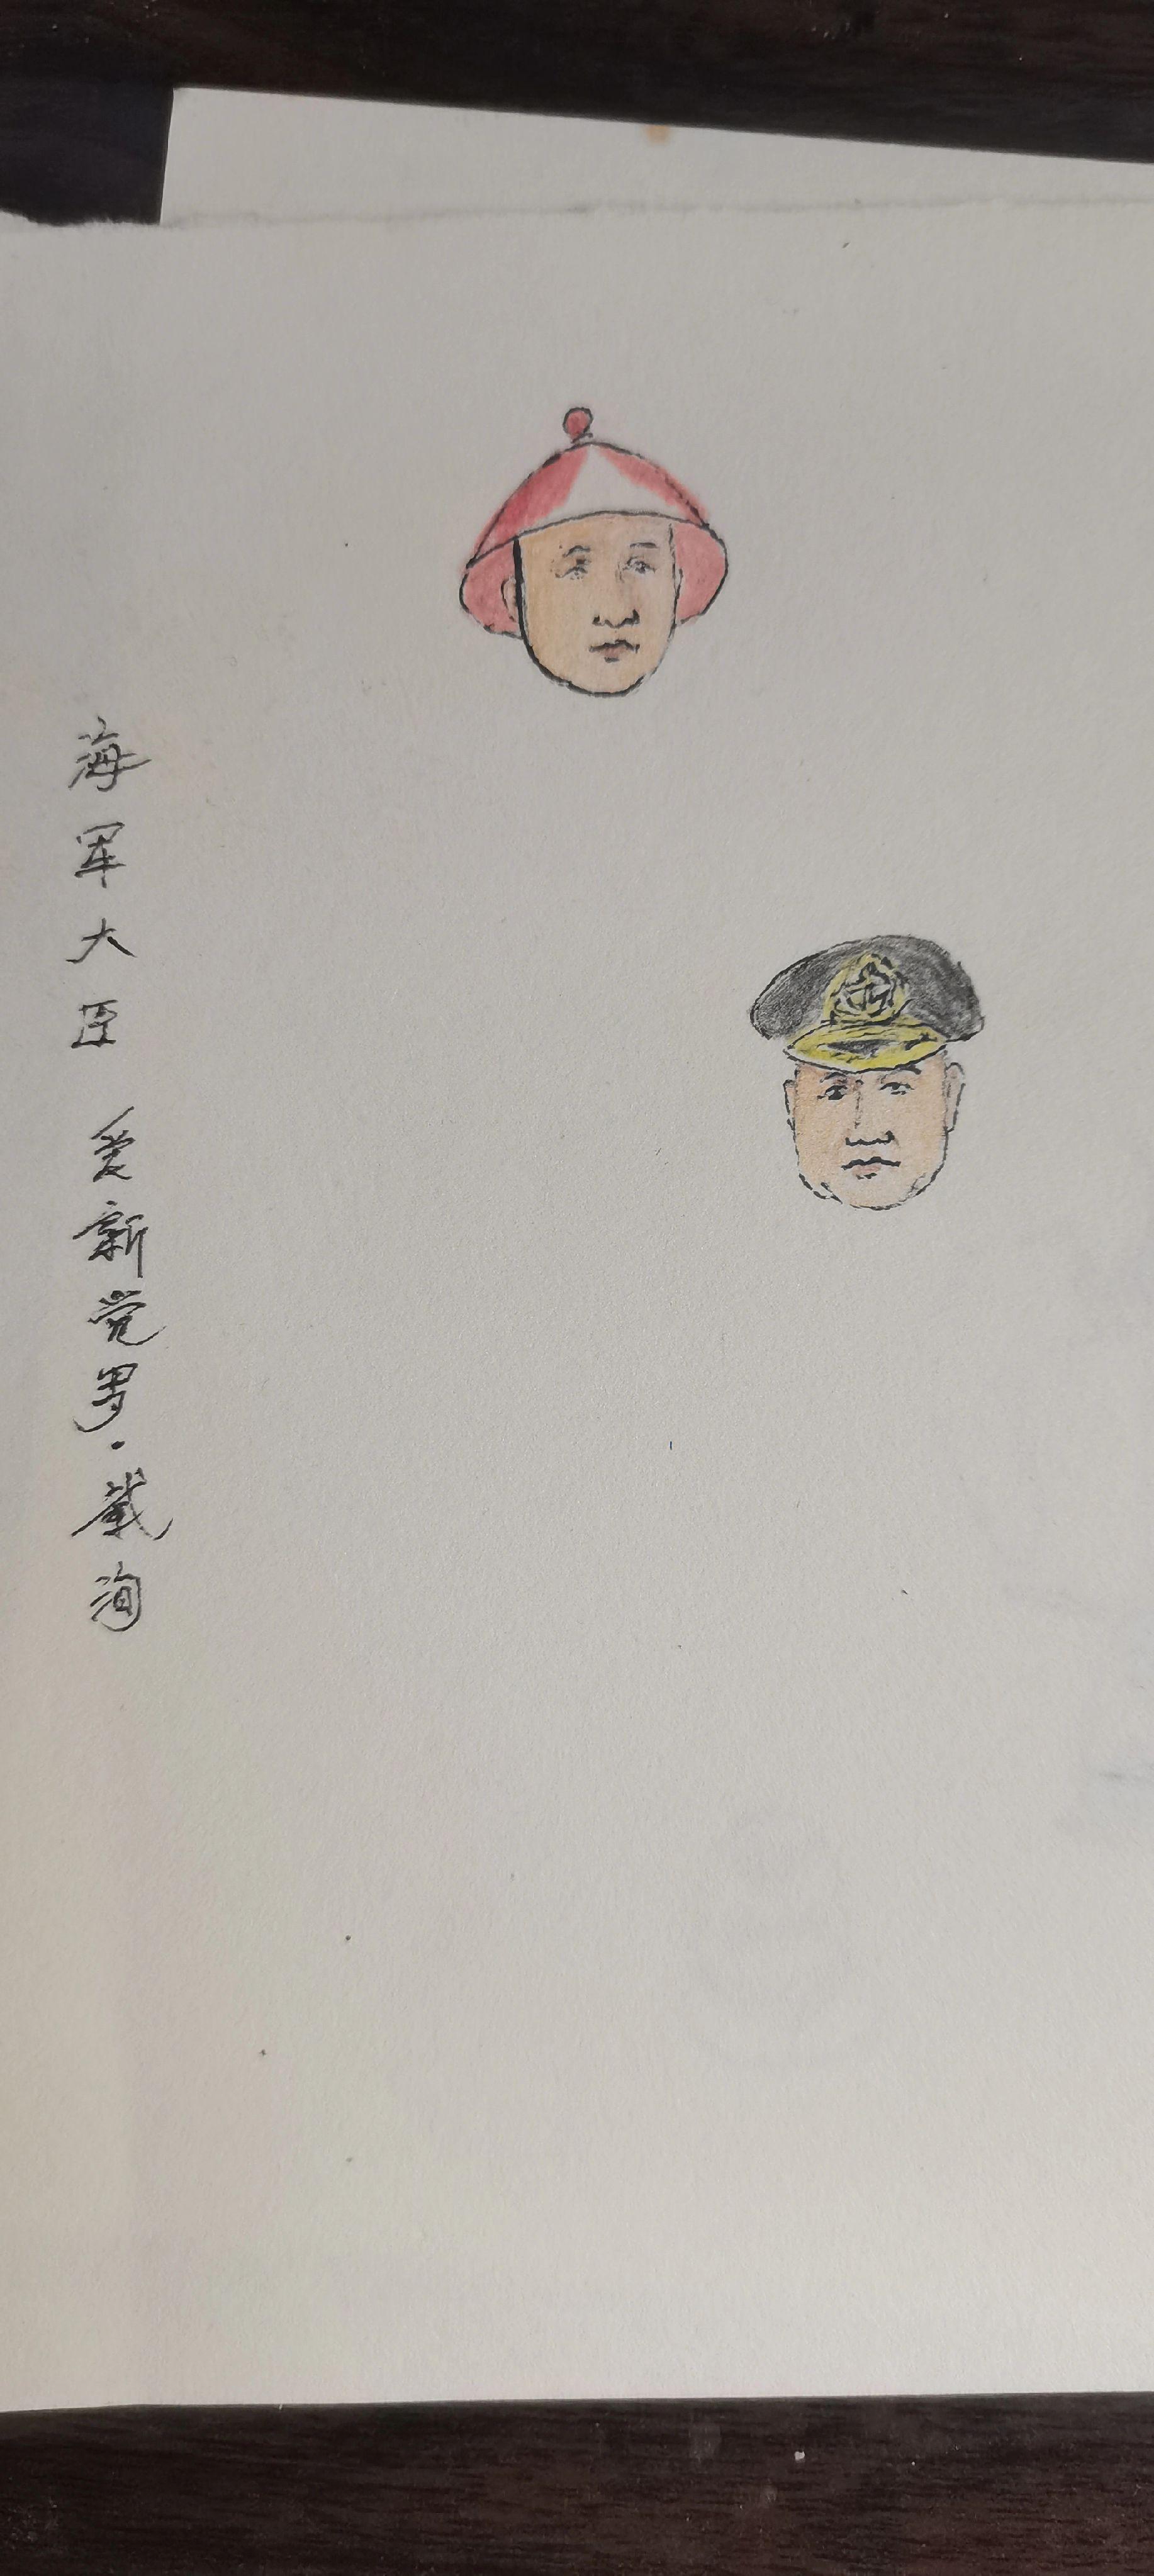 海军大臣 爱新觉罗·载洵